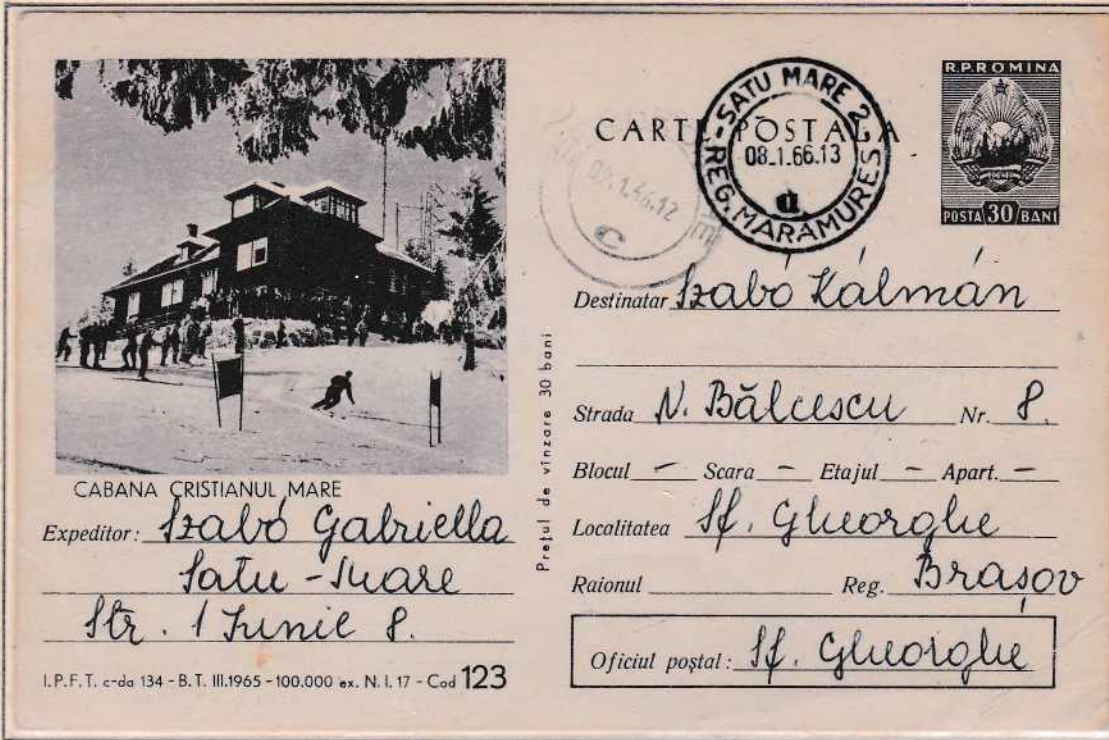 CABANA CRISTIANUL MARE
Expeditor: Szabó Gabriella
Satu-Mare
Str. 1 Iunie 8.
I.P.F.T. c-da 134 - B.T. III.1965 - 100.000 ex. N. I. 17 - Cod 123
Prețul de vînzare 30 bani
CARTE POSTALA
SATU MARE 2
08.1.66.13
d
REG. MARAMUREȘ
09.1.66.12
c
R.P.ROMINA
POSTA 30 BANI
Destinatar Szabó Kálmán
Strada N. Bălcescu Nr. 8.
Blocul - Scara - Etajul - Apart. -
Localitatea Sf. Gheorghe
Raionul Reg. Brașov
Oficiul poștal: Sf. Gheorghe